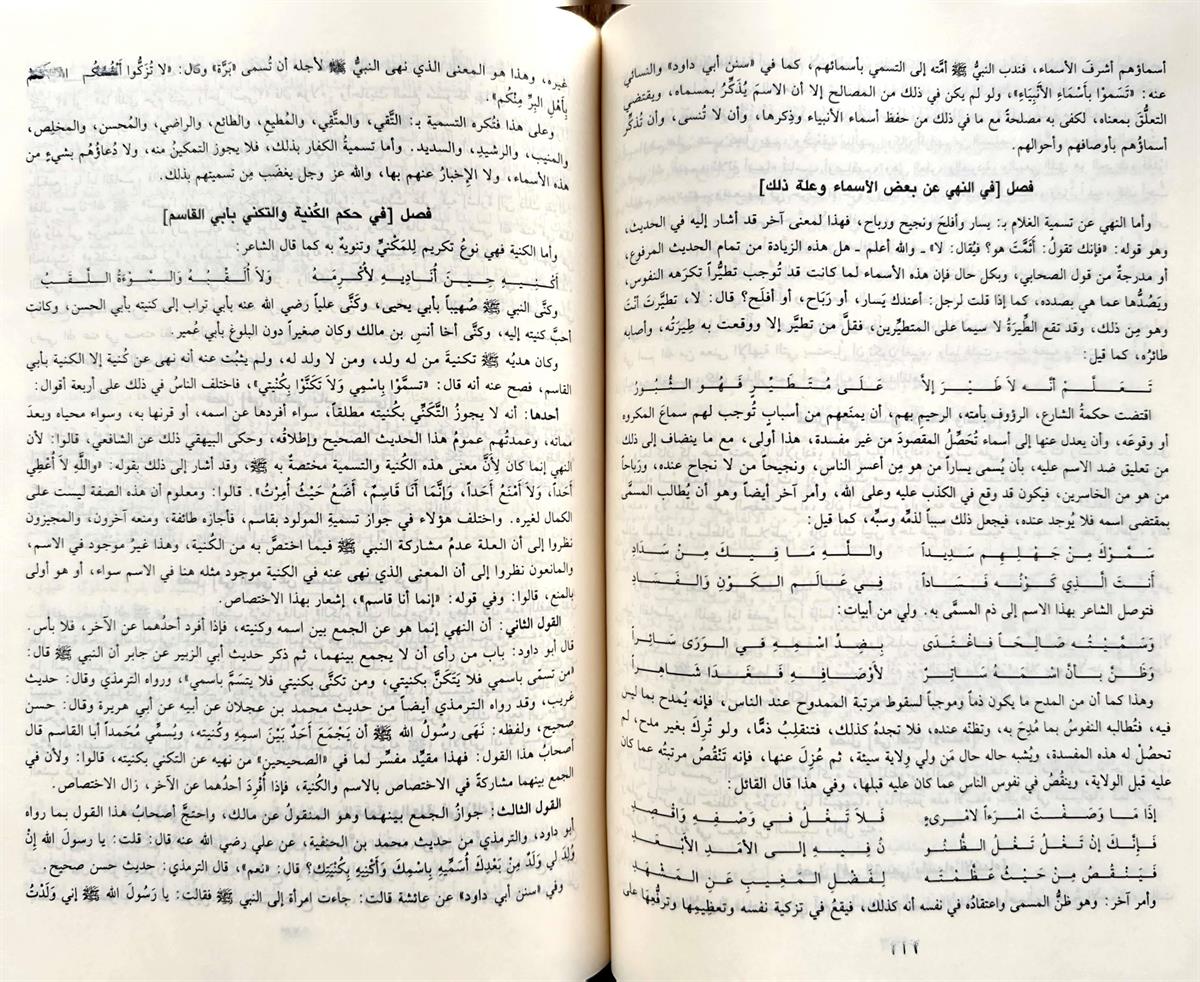 أسماؤهم أشرفَ الأسماء، فندب النبيُّ ﷺ أمَّته إلى التسمي بأسمائهم، كما في «سنن أبي داود» والنسائي
عنه: «تَسَموْا بأَسْمَاءِ الأَنْبِيَاءِ»، ولو لم يكن في ذلك من المصالح إلا أن الاسم يُذَكِّرُ بمسماه، ويقتضي
التعلُّقَ بمعناه، لكفى به مصلحةً مع ما في ذلك من حفظ أسماء الأنبياء وذِكرها، وأن لا تُنسى، وأن تُذَكِّرَ
أسماؤُهم بأوصافهم وأحوالهم.
فصل [في النهي عن بعض الأسماء وعلة ذلك]
وأما النهي عن تسمية الغلام بـ: يسار وأفلحَ ونجيح ورباح، فهذا لمعنى آخر قد أشار إليه في الحديث،
وهو قوله: «فإنك تقولُ: أَثَمَّتَ هو؟ فيُقال: لا» ـ والله أعلم ـ هل هذه الزيادة من تمام الحديث المرفوع،
أو مدرجةٌ من قول الصحابي، وبكل حال فإن هذه الأسماء لما كانت قد تُوجب تطيُّراً تكرَهه النفوس،
ويَصُدُّها عما هي بصدده، كما إذا قلت لرجل: أعندك يَسار، أو رَبَاح، أو أفلَح؟ قال: لا، تطيَّرتَ أنتَ
وهو مِن ذلك، وقد تقع الطِّيرَةُ لا سيما على المتطيِّرين، فقلَّ من تطيَّر إلا ووقعت به طِيرَتُه، وأصابه
طائرُه، كما قيل:
تَعَلَّمْ أنَّه لاَ طَيْرَ إلاَّ عَلَى مُتَطَيِّرٍ فَهُوَ الثُّبُورُ
اقتضت حكمةُ الشارع، الرؤوف بأمته، الرحيمِ بهم، أن يمنَعهم من أسبابٍ تُوجب لهم سماعَ المكروه
أو وقوعَه، وأن يعدل عنها إلى أسماء تُحَصِّلُ المقصودَ من غير مفسدة، هذا أولى، مع ما ينضاف إلى ذلك
من تعليق ضد الاسم عليه، بأن يُسمى يساراً من هو مِن أعسر الناس، ونجيحاً من لا نجاح عنده، ورَبَاحاً
من هو من الخاسرين، فيكون قد وقع في الكذب عليه وعلى الله، وأمر آخر أيضاً وهو أن يُطالب المسمَّى
بمقتضى اسمه فلا يُوجد عنده، فيجعل ذلك سبباً لذمِّه وسبِّه، كما قيل:
سَمَّوْكَ مِنْ جَهْلِهِم سَدِيداً واللَّهِ مَا فِيكَ مِنْ سَدَادِ
أَنتَ الَّذِي كَوْنُه فَسَاداً فِي عَالَمِ الكَوْنِ وَالفَسَادِ
فتوصل الشاعر بهذا الاسم إلى ذم المسمَّى به. ولي من أبيات:
وَسَمَّيْتُه صَالِحَاً فَاغْتَدَى بِضِدِّ اسْمِهِ فِي الوَرَى سَائِراً
وَظَنَّ بأَنَّ اسْمَهُ سَاتِرٌ لأَوْصَافِهِ فَغَدَا شَاهِراً
وهذا كما أن من المدح ما يكون ذماً وموجباً لسقوط مرتبة الممدوح عند الناس، فإنه يُمدح بما ليس
فيه، فتُطالبه النفوسُ بما مُدِحَ به، وتظنُّه عنده، فلا تجدهُ كذلك، فتنقلِبُ ذمّاً، ولو تُرِكَ بغير مدح، لم
تحصُلْ له هذه المفسدة، ويُشبه حاله حال مَن ولي وِلاية سيئة، ثم عُزِلَ عنها، فإنه تَنْقُصُ مرتبتُه عما كان
عليه قبل الولاية، وينقُصُ في نفوس الناس عما كان عليه قبلها، وفي هذا قال القائل:
إذَا مَا وَصَفْتَ امْرَءاً لامْرِىءٍ فَلاَ تَغْلُ فِي وَصْفِهِ وَاقْصِدِ
فَإِنَّكَ إنْ تَغْلُ تَغْلُ الظُّنُو نُ فِيهِ إلَى الأَمَدِ الأَبْعَدِ
فَيَنْقُصُ مِنْ حَيْثُ عَظَّمْتَه لِفَضْلِ المَغِيبِ عَنِ المَشْهَدِ
وأمر آخر: وهو ظنُّ المسمى واعتقادُه في نفسه أنه كذلك، فيقعُ في تزكية نفسه وتعظِيمِها وترفُّعِها على
غيره، وهذا هو المعنى الذي نهى النبيُّ ﷺ لأجله أن تُسمى «بَرَّة» وقال: «لا تُزَكُّوا أَنفُسَكُم
بأَهلِ البِرِّ مِنْكُم».
وعلى هذا فتُكره التسمية بـ: التَّقي، والمتَّقِي، والمُطيعِ، والطائع، والراضي، والمُحسن، والمخلِص،
والمنيب، والرشيدِ، والسديد. وأما تسميةُ الكفار بذلك، فلا يجوز التمكينُ منه، ولا دُعاؤُهم بشيءٍ من
هذه الأسماء، ولا الإخبارُ عنهم بها، والله عز وجل يغضَب مِن تسميتهم بذلك.
فصل [في حكم الكُنية والتكني بأبي القاسم]
وأما الكنية فهي نوعُ تكريم لِلمَكْنِيِّ وتنويهٌ به كما قال الشاعر:
أَكْنِيهِ حِينَ أُنَادِيهِ لأُكْرِمَهُ وَلاَ أُلَقِّبُهُ وَالسَّوْءَةُ اللَّقَبُ
وكنَّى النبي ﷺ صُهيباً بأبي يحيى، وكَنَّى علياً رضي الله عنه بأبي تراب إلى كنيته بأبي الحسن، وكانت
أحبَّ كنيته إليه، وكنَّى أخا أنسِ بن مالك وكان صغيراً دون البلوغ بأبي عُمير.
وكان هديُه ﷺ تكنيةَ من له ولد، ومن لا ولد له، ولم يثبُت عنه أنه نهى عن كُنية إلا الكنية بأبي
القاسم، فصح عنه أنه قال: «تسمَّوْا بِاسْمِي وَلاَ تَكَنَّوْا بِكُنْيَتِي»، فاختلف الناسُ في ذلك على أربعة أقوال:
أحدها: أنه لا يجوزُ التَّكَنِّي بكُنيته مطلقاً، سواء أفردها عن اسمه، أو قرنها به، وسواء محياه وبعدَ
مماته، وعمدتُهم عمومُ هذا الحديث الصحيح وإطلاقُه، وحكى البيهقي ذلك عن الشافعي، قالوا: لأن
النهي إنما كان لِأَنَّ معنى هذه الكُنية والتسمية مختصةٌ به ﷺ، وقد أشار إلى ذلك بقوله: «واللَّهِ لاَ أُعْطِي
أَحَداً، وَلاَ أَمْنَعُ أَحَداً، وَإنَّمَا أَنَا قَاسِمٌ، أَضَعُ حَيْثُ أُمِرْتُ». قالوا: ومعلوم أن هذه الصفة ليست على
الكمال لغيره. واختلف هؤلاء في جواز تسميةِ المولود بقاسم، فأجازه طائفة، ومنعه آخرون، والمجيزون
نظروا إلى أن العلة عدمُ مشاركة النبي ﷺ فيما اختصَّ به من الكُنية، وهذا غيرُ موجود في الاسم،
والمانعون نظروا إلى أن المعنى الذي نهى عنه في الكنية موجود مثله هنا في الاسم سواء، أو هو أولى
بالمنع، قالوا: وفي قوله: «إنما أنا قاسم»، إشعار بهذا الاختصاص.
القول الثاني: أن النهي إنما هو عن الجمع بين اسمه وكنيته، فإذا أفرد أحدُهما عن الآخر، فلا بأس.
قال أبو داود: باب من رأى أن لا يجمع بينهما، ثم ذكر حديث أبي الزبير عن جابر أن النبي ﷺ قال:
«من تسمَّى باسمي فلا يَتَكَنَّ بكنيتي، ومن تكنَّى بكنيتي فلا يتسَمَّ باسمي»، ورواه الترمذي وقال: حديث
غريب، وقد رواه الترمذي أيضاً من حديث محمد بن عجلان عن أبيه عن أبي هريرة وقال: حسن
صحيح، ولفظه: نَهَى رسُولُ الله ﷺ أن يَجْمَعَ أَحَدٌ بَيْنَ اسمِهِ وكُنيته، ويُسمِّي مُحَمداً أبا القاسم قال
أصحابُ هذا القول: فهذا مقيِّد مفسِّر لما في «الصحيحين» من نهيه عن التكني بكنيته، قالوا: ولأن في
الجمع بينهما مشاركةً في الاختصاص بالاسم والكُنية، فإذا أُفْرِدَ أحدُهما عن الآخر، زال الاختصاص.
القول الثالث: جوازُ الجمع بينهما وهو المنقولُ عن مالك، واحتجَّ أصحابُ هذا القول بما رواه
أبو داود، والترمذي من حديث محمد بن الحنفية، عن علي رضي الله عنه قال: قلت: يا رسولَ الله إنْ
وُلِدَ لي وَلَدٌ مِنْ بَعْدِكَ أُسَمِّيهِ بِاسْمِكَ وَأَكْنِيهِ بِكُنْيَتِكَ؟ قال: «نعم»، قال الترمذي: حديث حسن صحيح.
وفي «سنن أبي داود» عن عائشة قالت: جاءت امرأة إلى النبي ﷺ فقالت: يا رَسُولَ الله ﷺ إني وَلَدْتُ